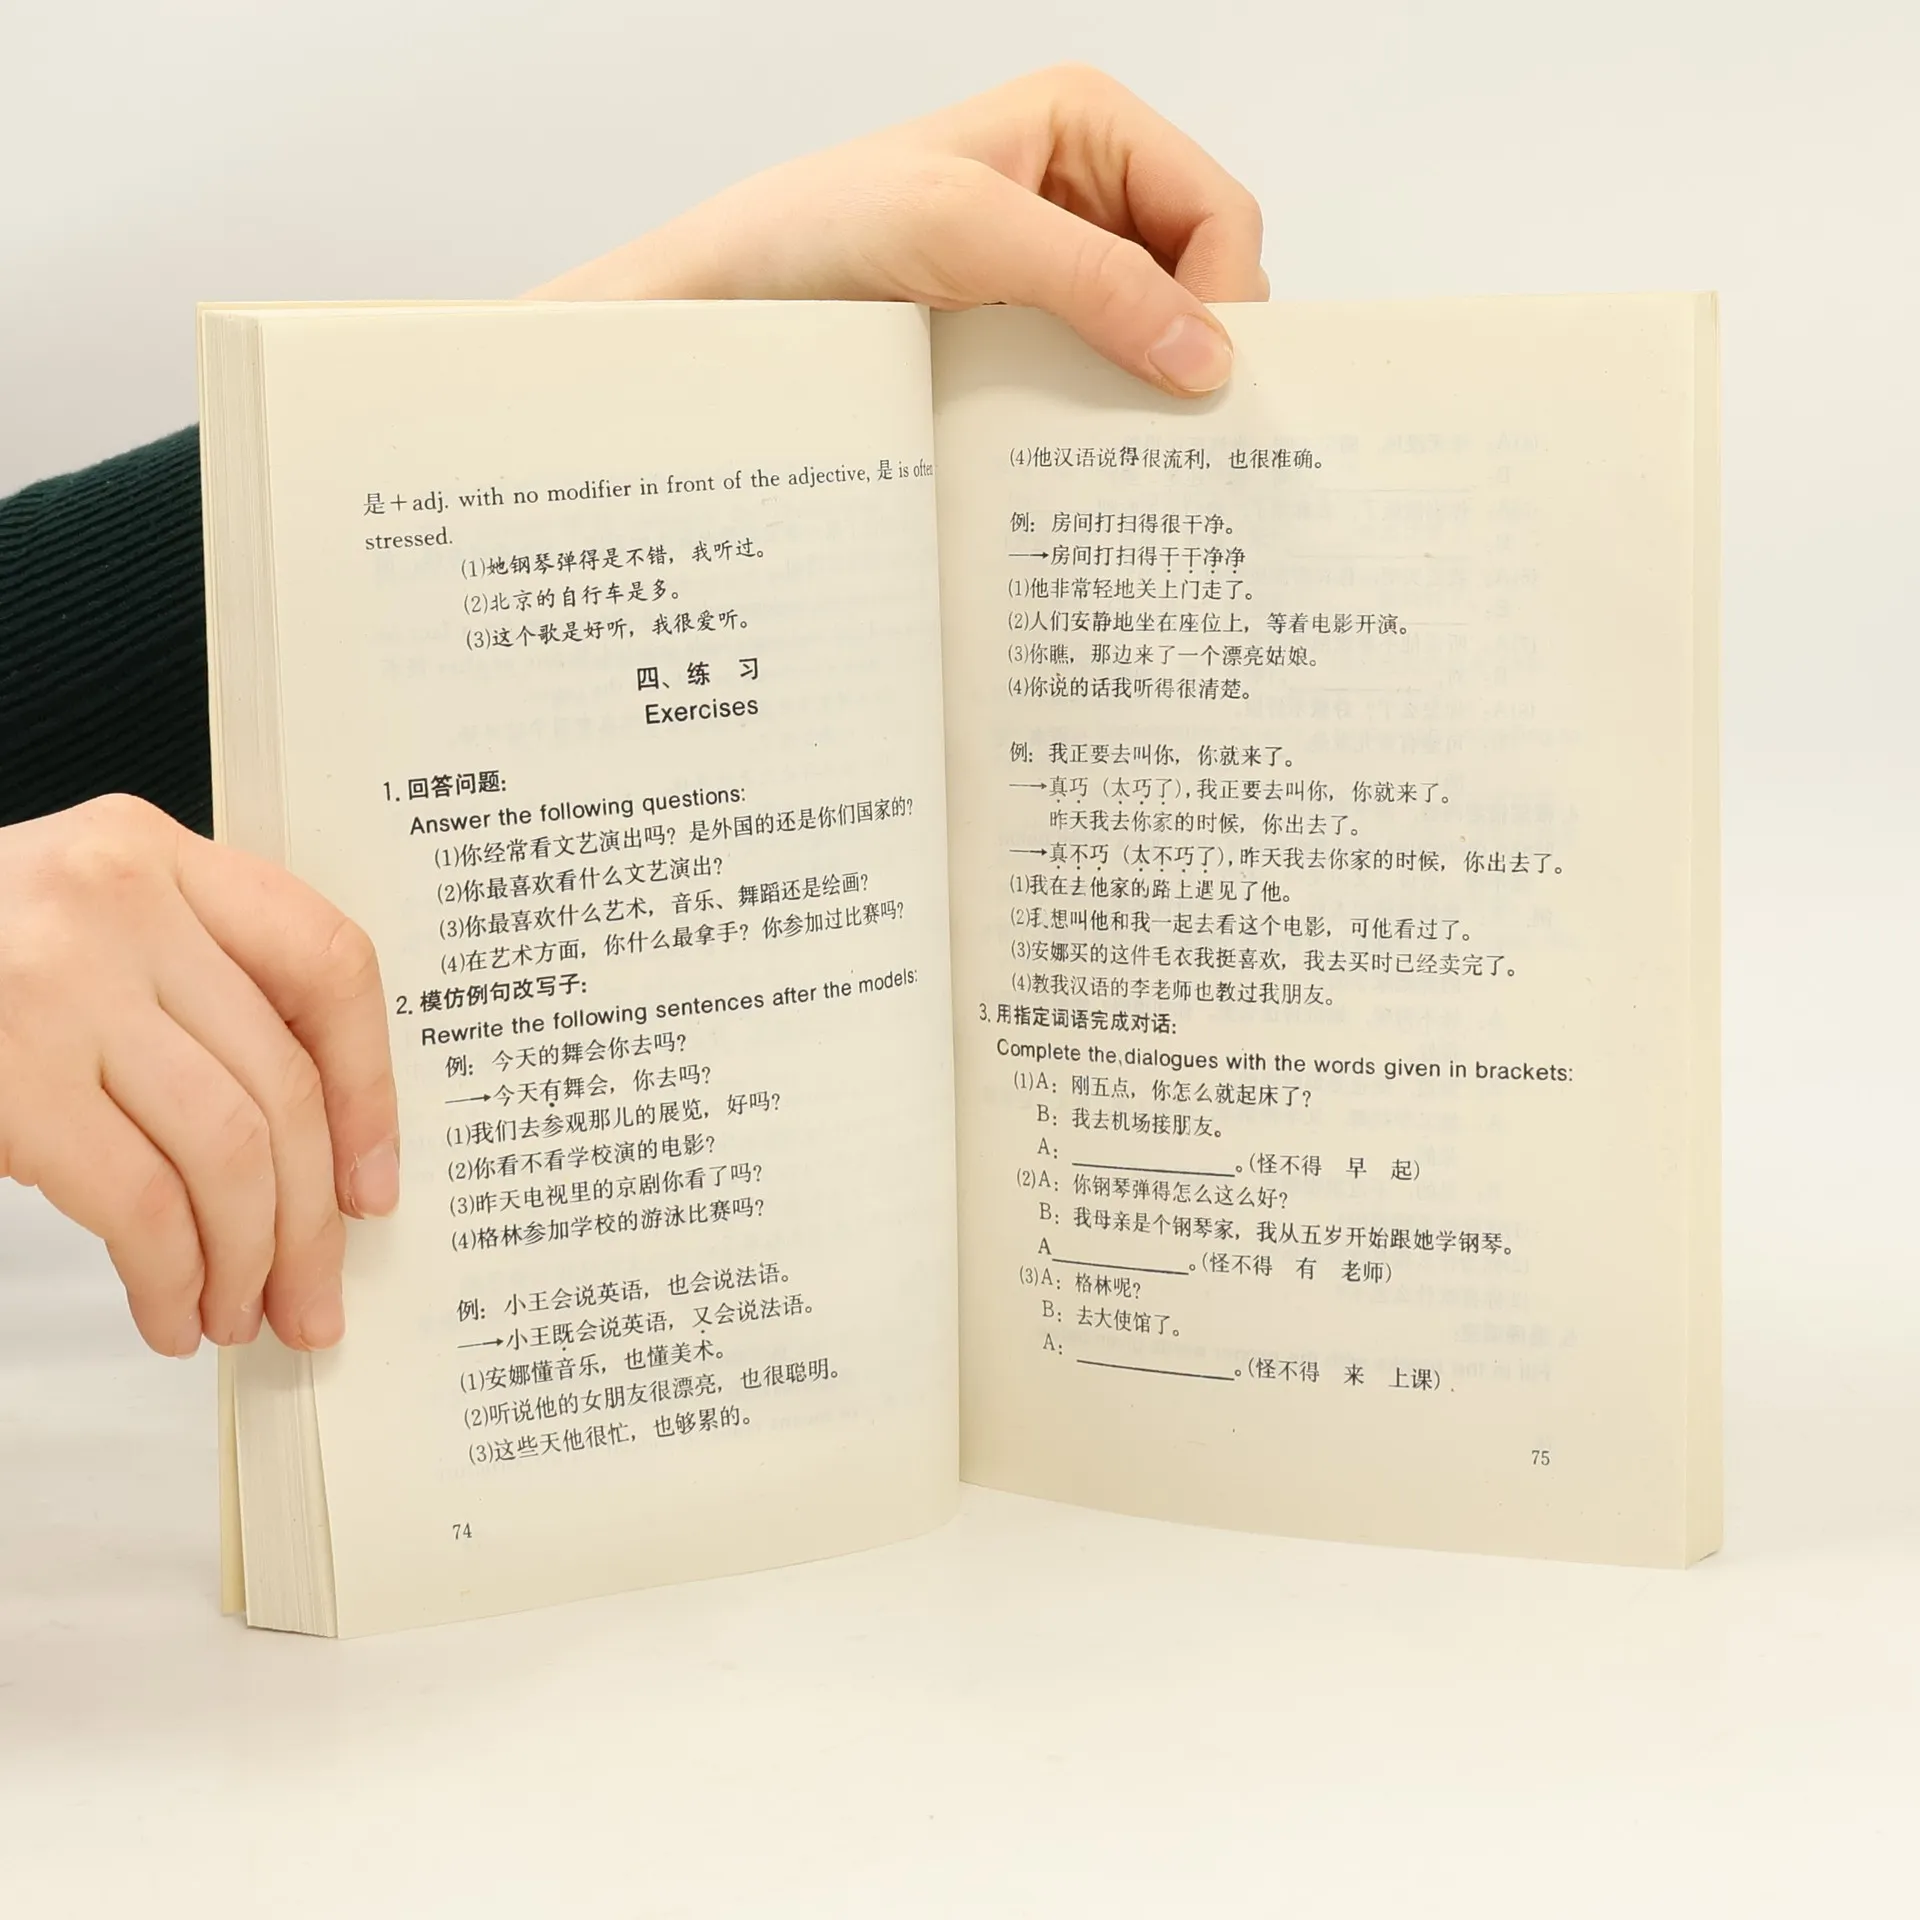 是＋adj. with no modifier in front of the adjective, 是 is often
stressed.
(1)她钢琴弹得是不错，我听过。
(2)北京的自行车是多。
(3)这个歌是好听，我很爱听。
四、练 习
Exercises
1. 回答问题:
Answer the following questions:
(1)你经常看文艺演出吗？是外国的还是你们国家的？
(2)你最喜欢看什么文艺演出？
(3)你最喜欢什么艺术，音乐、舞蹈还是绘画？
(4)在艺术方面，你什么最拿手？你参加过比赛吗？
2. 模仿例句改写子:
Rewrite the following sentences after the models:
例：今天的舞会你去吗？
→今天有舞会，你去吗？
(1)我们去参观那儿的展览，好吗？
(2)你看不看学校演的电影？
(3)昨天电视里的京剧你看了吗？
(4)格林参加学校的游泳比赛吗？
例：小王会说英语，也会说法语。
→小王既会说英语，又会说法语。
(1)安娜懂音乐，也懂美术。
(2)听说他的女朋友很漂亮，也很聪明。
(3)这些天他很忙，也够累的。
74
(4)他汉语说得很流利，也很准确。
例：房间打扫得很干净。
→房间打扫得干干净净
(1)他非常轻地关上门走了。
(2)人们安静地坐在座位上，等着电影开演。
(3)你瞧，那边来了一个漂亮姑娘。
(4)你说的话我听得很清楚。
例：我正要去叫你，你就来了。
→真巧（太巧了），我正要去叫你，你就来了。
昨天我去你家的时候，你出去了。
→真不巧（太不巧了），昨天我去你家的时候，你出去了。
(1)我在去他家的路上遇见了他。
(2)我想叫他和我一起去看这个电影，可他看过了。
(3)安娜买的这件毛衣我挺喜欢，我去买时已经卖完了。
(4)教我汉语的李老师也教过我朋友。
3. 用指定词语完成对话:
Complete the dialogues with the words given in brackets:
(1)A：刚五点，你怎么就起床了？
B：我去机场接朋友。
A：____________。(怪不得 早 起)
(2)A：你钢琴弹得怎么这么好？
B：我母亲是个钢琴家，我从五岁开始跟她学钢琴。
A____________。(怪不得 有 老师)
(3)A：格林呢？
B：去大使馆了。
A：____________。(怪不得 来 上课)
75